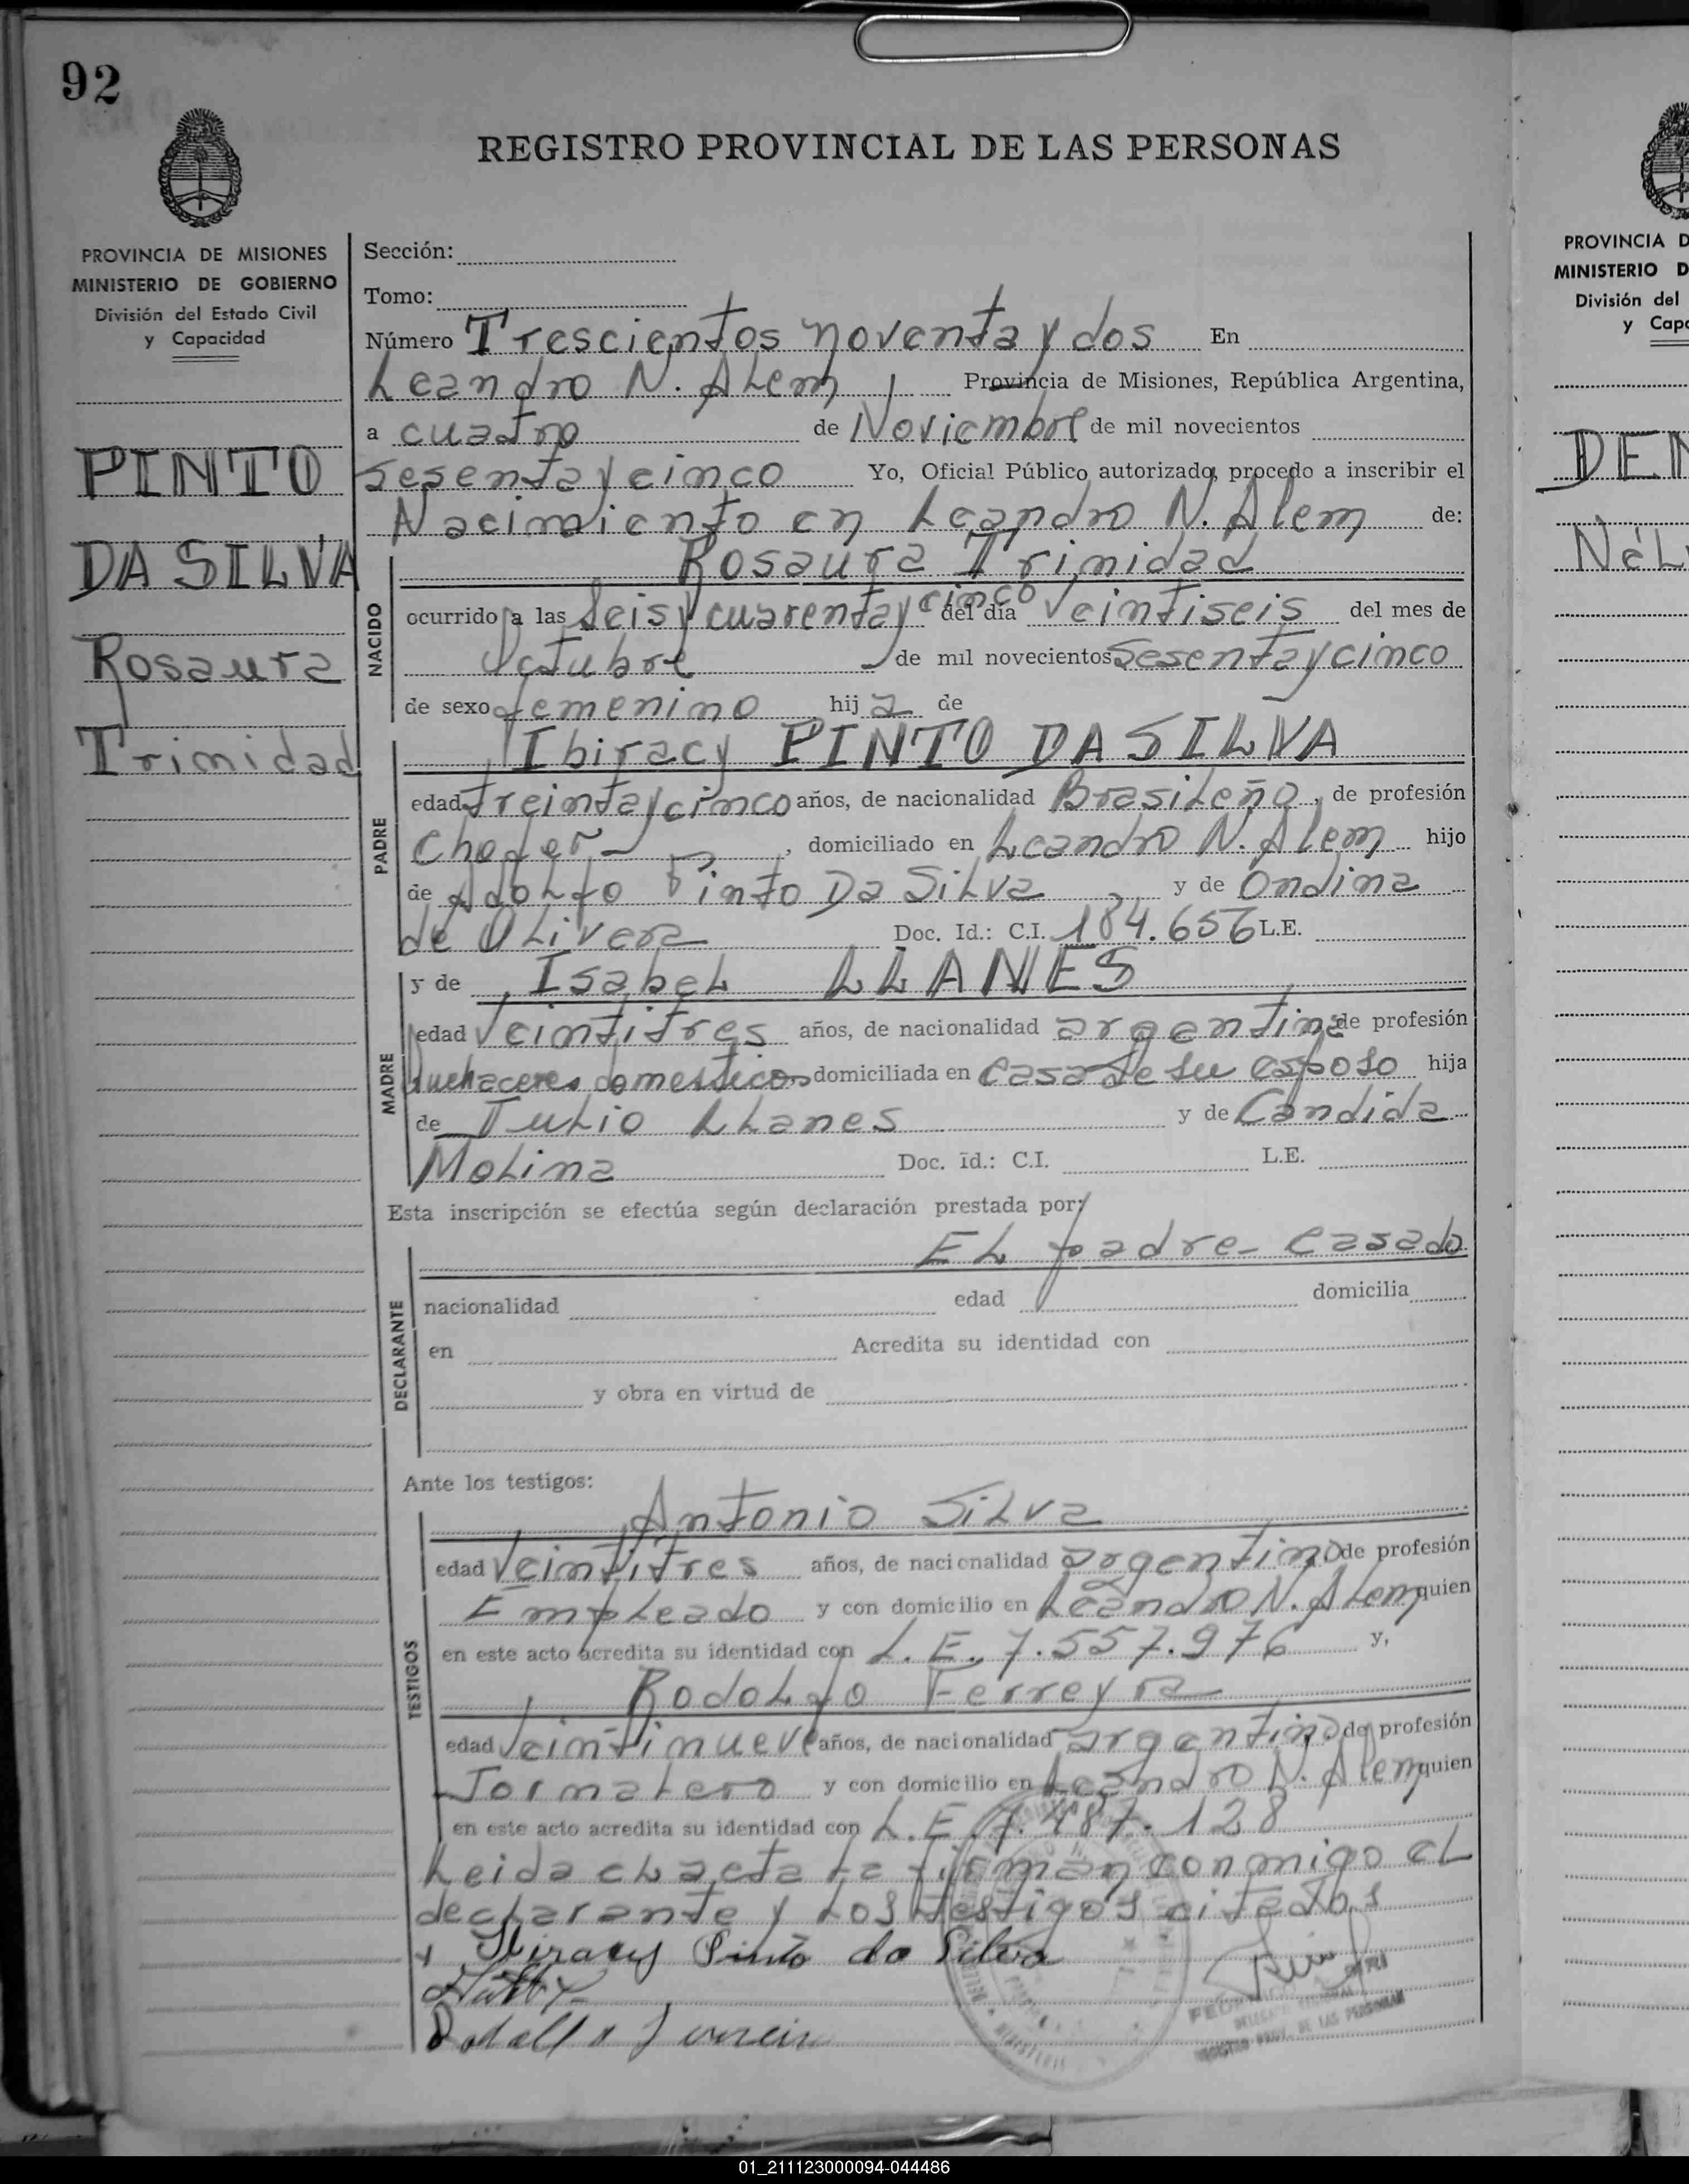 92
REGISTRO PROVINCIAL DE LAS PERSONAS
PROVINCIA DE MISIONES
MINISTERIO DE GOBIERNO
División del Estado Civil
y Capacidad
PINTO
DA SILVA
Rosaura
Trinidad
Sección:
Tomo:
Número Trescientos noventa y dos En
Leandro N. Alem, Provincia de Misiones, República Argentina,
a cuatro de Noviembre de mil novecientos
sesenta y cinco Yo, Oficial Público autorizado, procedo a inscribir el
Nacimiento en Leandro N. Alem de:
Rosaura Trinidad
NACIDO
ocurrido a las Seis y cuarenta y cinco del día Veintiseis del mes de
Octubre de mil novecientos Sesenta y cinco
de sexo femenino hija de
PADRE
Ibiracy PINTO DA SILVA
edad treinta y cinco años, de nacionalidad Brasileño, de profesión
Chofer, domiciliado en Leandro N. Alem hijo
de Adolfo Pinto Da Silva y de Ondina
de Olivera Doc. Id.: C.I. 184.656 L.E.
MADRE
y de Isabel LLANES
edad Veintitres años, de nacionalidad argentina de profesión
Quehaceres domesticos domiciliada en Casa de su esposo hija
de Julio Llanes y de Candida
Molina Doc. Id.: C.I. L.E.
Esta inscripción se efectúa según declaración prestada por:
EL padre - Casado
DECLARANTE
nacionalidad edad domicilia
en Acredita su identidad con
y obra en virtud de
Ante los testigos:
TESTIGOS
Antonio Silva
edad Veintitres años, de nacionalidad argentino de profesión
Empleado y con domicilio en Leandro N. Alem quien
en este acto acredita su identidad con L.E. 7.557.976 y,
Rodolfo Ferreyra
edad Veintinueve años, de nacionalidad argentino de profesión
Jornalero y con domicilio en Leandro N. Alem quien
en este acto acredita su identidad con L.E. 7.487.128
Leida el acta la firman conmigo el
declarante y los testigos citados
Ibiracy Pinto da Silva
REGISTRO PROV. DE LAS PERSONAS
PROVINCIA D
MINISTERIO D
División del
y Capa
DEN
NéL
01_211123000094-044486